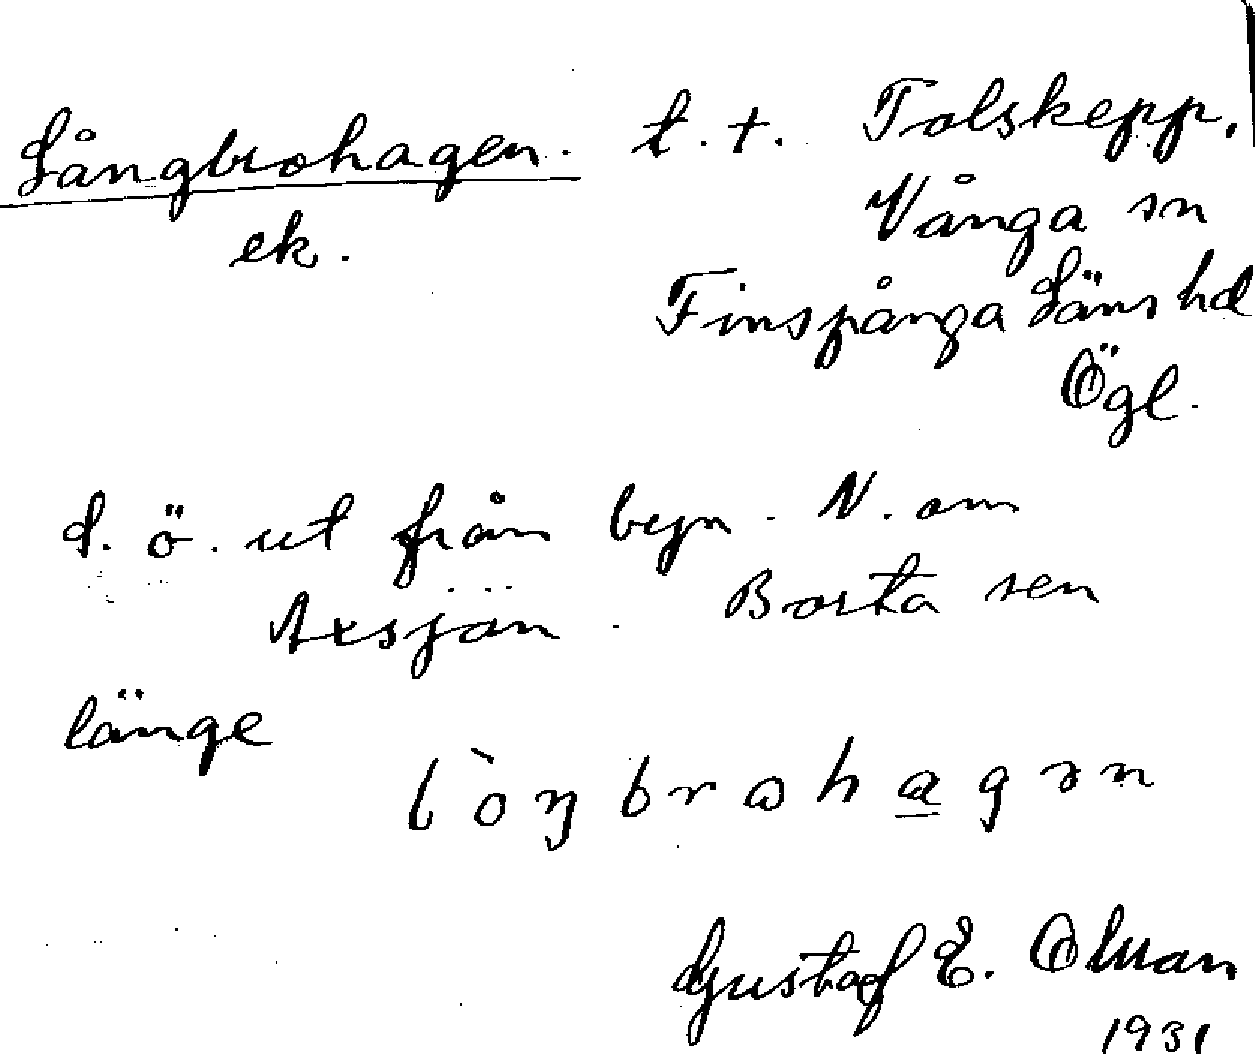 Långbrohagen. t. t. Tolskepp.
ek. Vånga sn
Finspånga Läns hd
Ögl.
S. ö. ut från byn. N. om
Axsjön. Borta sen
länge
lòŋbrωhagən
Gustaf E. Olman
1931